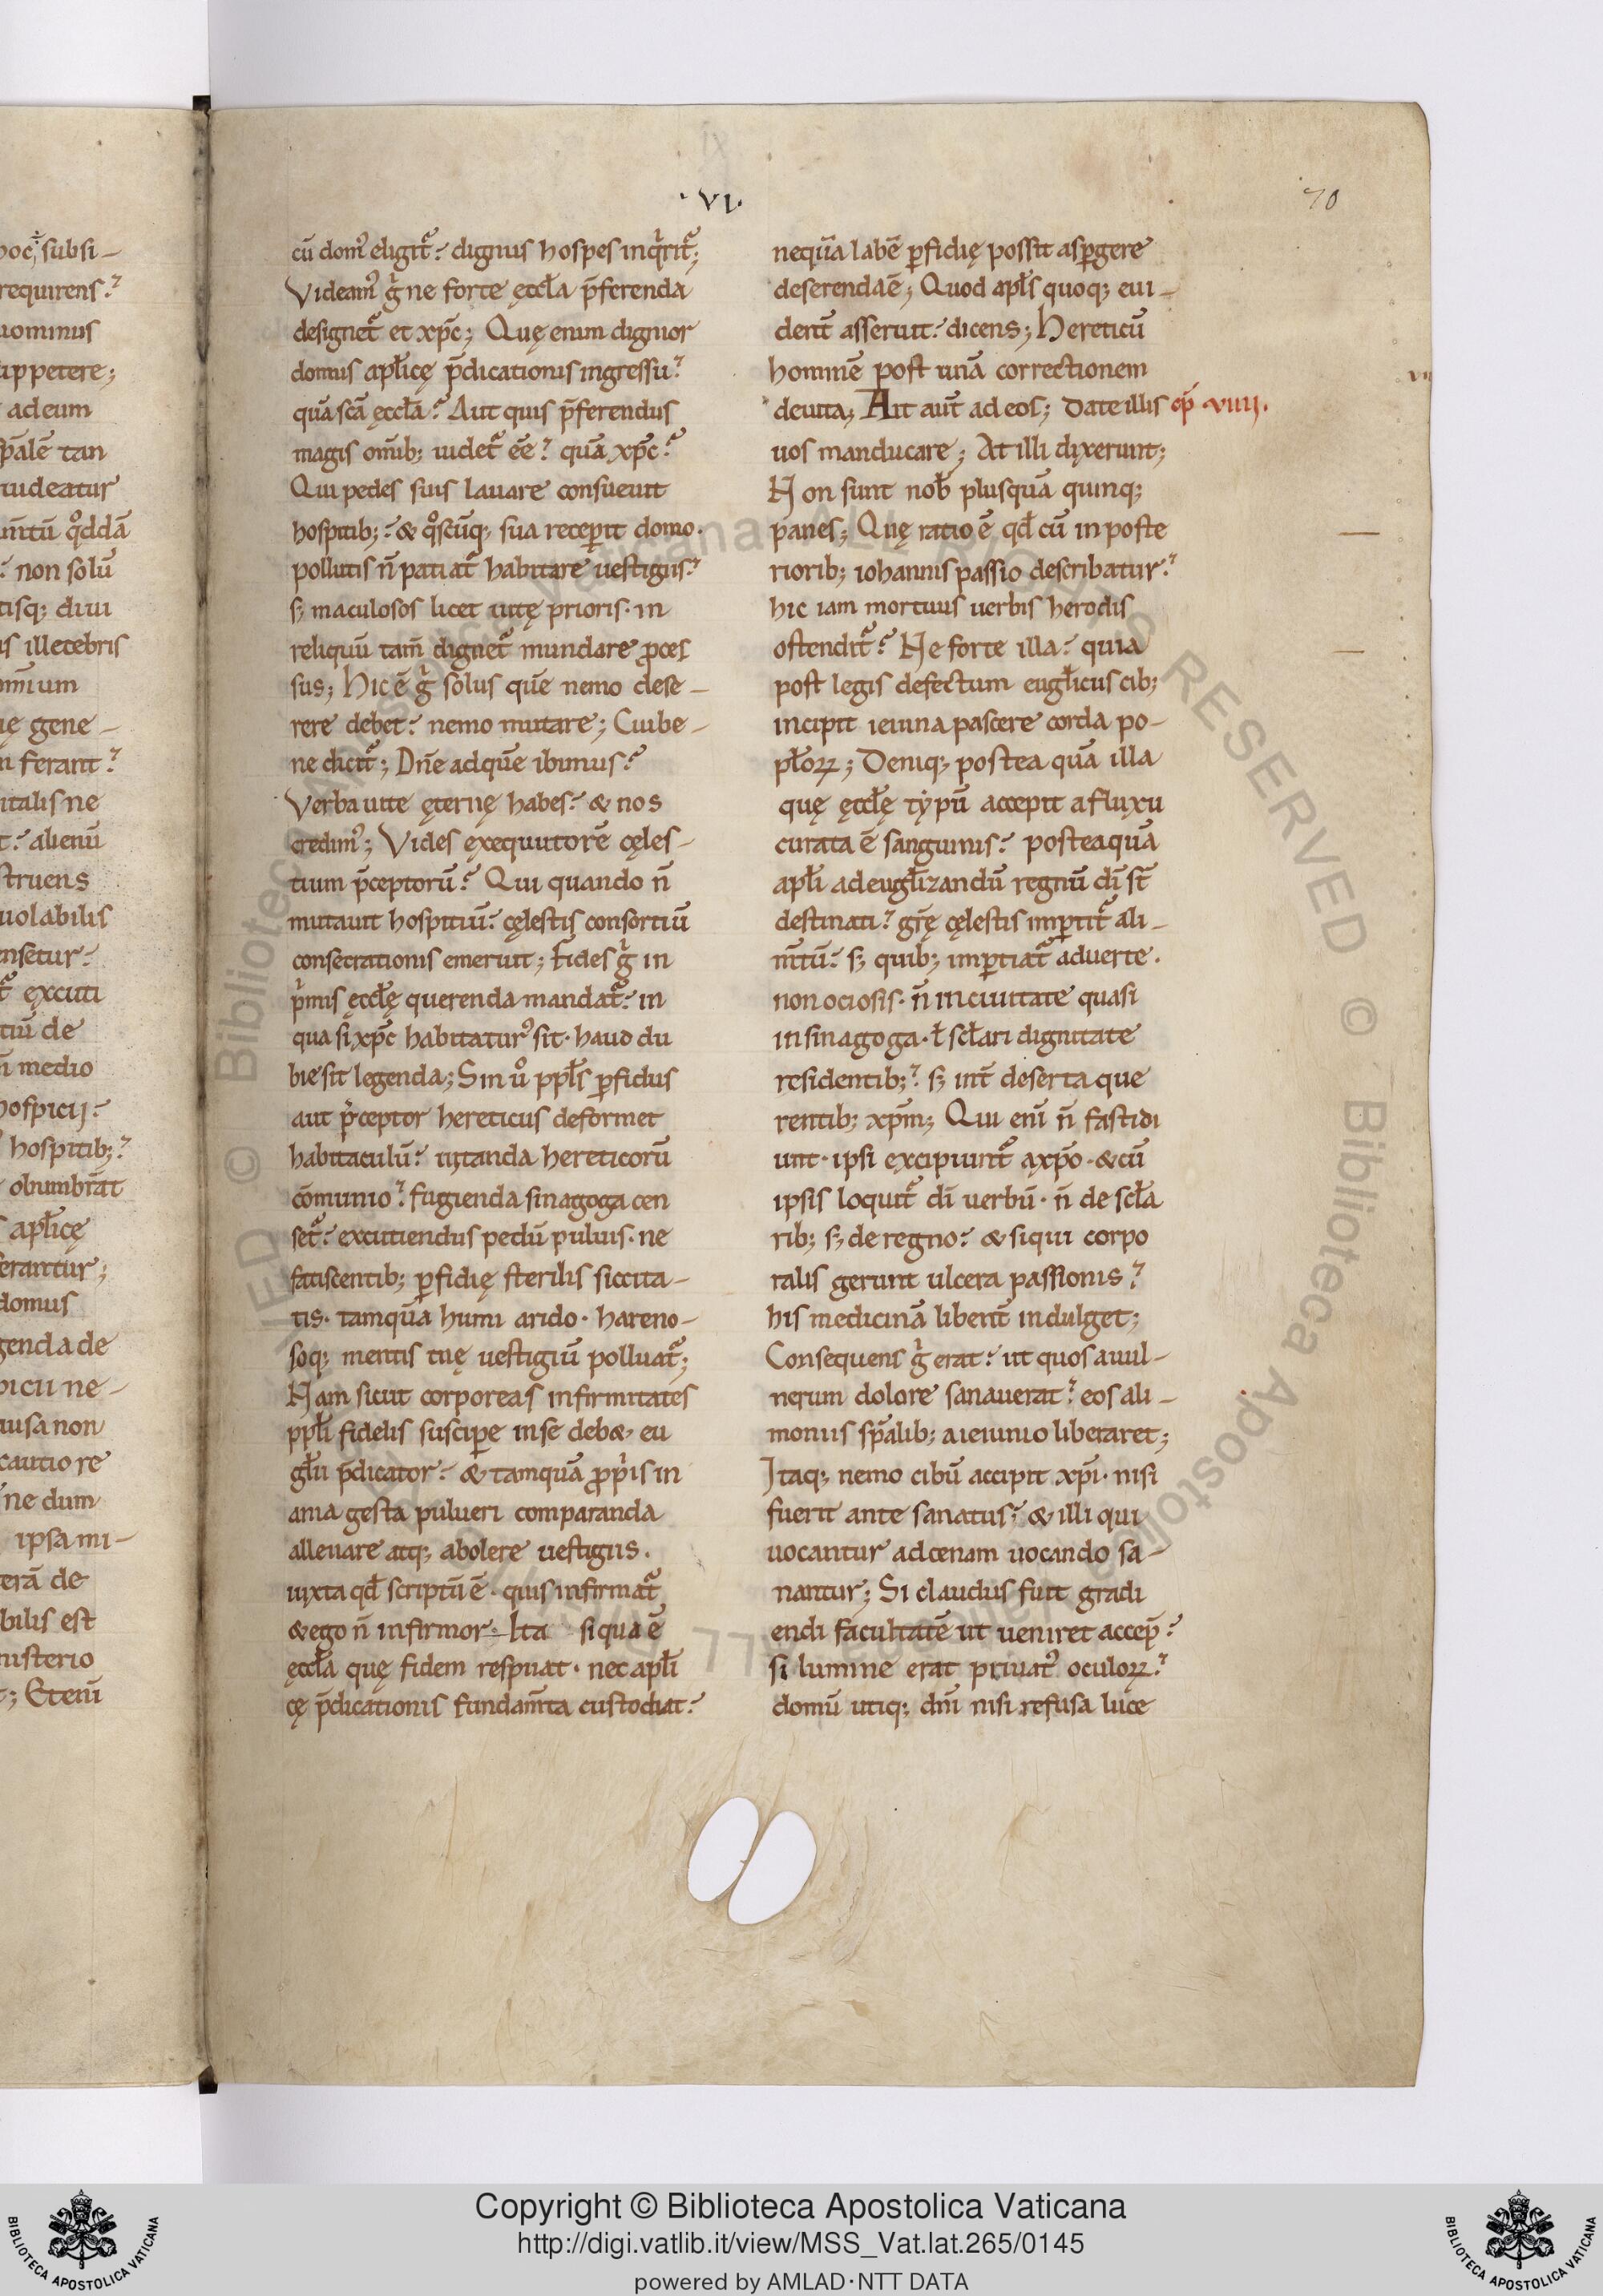 ·VI·
70
cū dom᷒ eligit᷑? dignus hospes inqͥrit᷑;
Videam᷒ gͥ ne forte ęccła p̄ferenda
designet᷑ et xp̄c; Quę enim dignior
domus apłicę p̄dicationis ingressu?
quā scā ęccła? Aut quis p̄ferendus
magis om̄ib; uidet᷑ ēē? quā xp̄c?
Qui pedes suis lauare consueuit
hospitib;? & qͦscūq; sua receꝑit domo·
pollutis n̄ patiat᷑ habitare uestigiis?
s; maculosos licet uitę prioris· in
reliquū tam̄ dignet᷑ mundare ꝓces
sus; Hic ē gͥ solus quē nemo dese-
rere debet? nemo mutare; Cui be-
ne dicit᷑; Dn̄e ad quē ibimus?
Verba uite ęternę habes? & nos
credim᷒; Vides exequutorē cęles-
tium p̄ceptorū? Qui quando n̄
mutauit hospitiū? cęlestis consortiū
consecrationis emeruit; Fides gͥ in
pͥmis ęccłę querenda mandat᷑? in
qua si xp̄c habitatur᷒ sit· haud du
bie sit legenda; Sin uͦ ppłs ꝑfidus
aut p̄ceptor hereticus deformet
habitaculū? uitanda hereticorū
cōmunio? fugienda sinagoga cen
set᷑? excutiendus pedū puluis· ne
fatiscentib; ꝑfidię sterilis siccita-
tis· tamquā humi arido· hareno-
soq; mentis tuę uestigiū polluat᷑;
Nam sicut corporeas infirmitates
ppłi fidelis susciꝑe in se deb&· eu
głii p̄dicator? & tamquā ꝓpͥis in
ania gesta pulueri comparanda
alleuare atq; abolere uestigiis·
iuxta qđ scriptū ē· quis infirmat᷑
& ego n̄ infirmor; Ita si qua ē
ęccła quę fidem respuat· nec apłi
cę p̄dicationis fundam̄ta custodiat?
nequa labē ꝑfidię possit asꝑgere
deserenda ē; Quod apłs quoq; eui-
dent̄ asseruit? dicens; Hereticū
hominē post unā correctionem
deuita; Ait aut̄ ad eos; Date illis cp̄ ·VIIII·
uos manducare; At illi dixerunt;
Non sunt nob̄ plusquā quinq;
panes; Quę ratio ē qđ cū in poste
riorib; iohannis passio describatur?
hic iam mortuus uerbis herodis
ostendit᷑? Ne forte illa? quia
post legis defectum eugłicus cib;
incipit ieiuna pascere corda po-
płoꝝ; Denique postea quā illa
quę ęccłę typū accepit a fluxu
curata ē sanguinis? posteaquā
apłi ad eugłizandū regnū dī st̄
destinati? gr̄ę cęlestis imꝑtit᷑ ali-
m̄tū? s; quib; imꝑtiat᷑ aduerte·
non ociosis· n̄ in ciuitate quasi
in sinagoga· ł scłari dignitate
residentib;? s; int̄ deserta que
rentib; xp̄m; Qui eni̅ n̄ fastidi
unt· ipsi excipiunt᷑ a xp̄o· & cū
ipsis loquit᷑ dī uerbū· n̄ de scła
rib; s; de regno? & si qui corpo
ralis gerunt ulcera passionis?
his medicinā libent̄ indulget;
Consequens gͥ erat? ut quos a uul-
nerum dolore sanauerat? eos ali-
moniis sp̄alib; a ieiunio liberaret;
Itaq; nemo cibū accipit xp̄i· nisi
fuerit ante sanatus? & illi qui
uocantur ad cenam uocando sa-
nantur; Si claudus fuit gradi
endi facultatē ut ueniret accep̄?
si lumine erat priuat᷒ oculoꝝ?
domū utiq; dn̄i nisi refusa luce
Copyright © Biblioteca Apostolica Vaticana
http://digi.vatlib.it/view/MSS_Vat.lat.265/0145
powered by AMLAD·NTT DATA
BIBLIOTECA APOSTOLICA VATICANA
BIBLIOTECA APOSTOLICA VATICANA